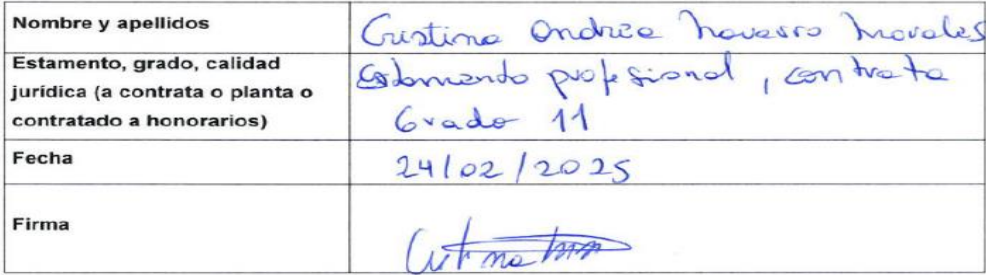 Nombre y apellidos
Cristina Andrea Navarro Morales
Estamento, grado, calidad
jurídica (a contrata o planta o
contratado a honorarios)
Estamento profesional, contrata
Grado 11
Fecha
24/02/2025
Firma